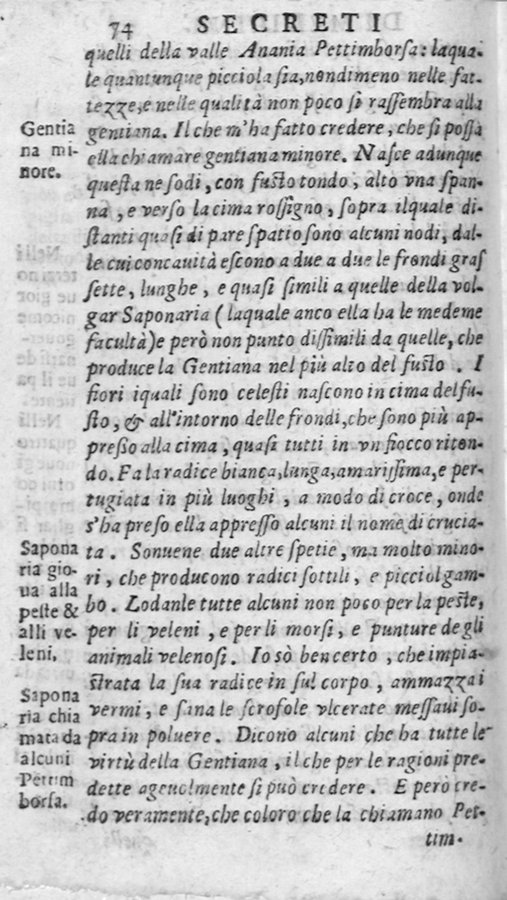 74 SECRETI
quelli della valle Anania Pettimborsa: laqua-
le quantunque picciola sia, nondimeno nelle fat-
tezze, e nelle qualità non poco si rassembra alla
Gentia
na mi-
nore.
gentiana. Il che m'ha fatto credere, che si possa
ella chiamare gentiana minore. Nasce adunque
questa ne sodi, con fusto tondo, alto vna span-
na, e verso la cima rossigno, sopra ilquale di-
stanti quasi di pare spatio sono alcuni nodi, dal-
le cui concauità escono a due a due le frondi gras
sette, lunghe, e quasi simili a quelle della vol-
gar Saponaria (laquale anco ella ha le medeme
facultà) e però non punto dissimili da quelle, che
produce la Gentiana nel più alto del fusto. I
fiori iquali sono celesti nascono in cima del fu-
sto, & all'intorno delle frondi, che sono più ap-
presso alla cima, quasi tutti in vn fiocco riton-
do. Fa la radice bianca, lunga, amarissima, e per-
tugiata in più luoghi, a modo di croce, onde
s'ha preso ella appresso alcuni il nome di crucia-
ta. Sonuene due altre spetie, ma molto mino-
ri, che producono radici sottili, e picciol gam-
bo. Lodanle tutte alcuni non poco per la peste,
per li veleni, e per li morsi, e punture de gli
animali velenosi. Io sò ben certo, che impia-
strata la sua radice in sul corpo, ammazza i
vermi, e sana le scrofole vlcerate messaui so-
pra in poluere. Dicono alcuni che ha tutte le
virtù della Gentiana, il che per le ragioni pre-
dette ageuolmente si può credere. E però cre-
do veramente, che coloro che la chiamano Pet-
tim-
Sapona
ria gio-
ua alla
peste &
alli ve-
leni.
Sapona
ria chia
mata da
alcuni
Petim
borsa.